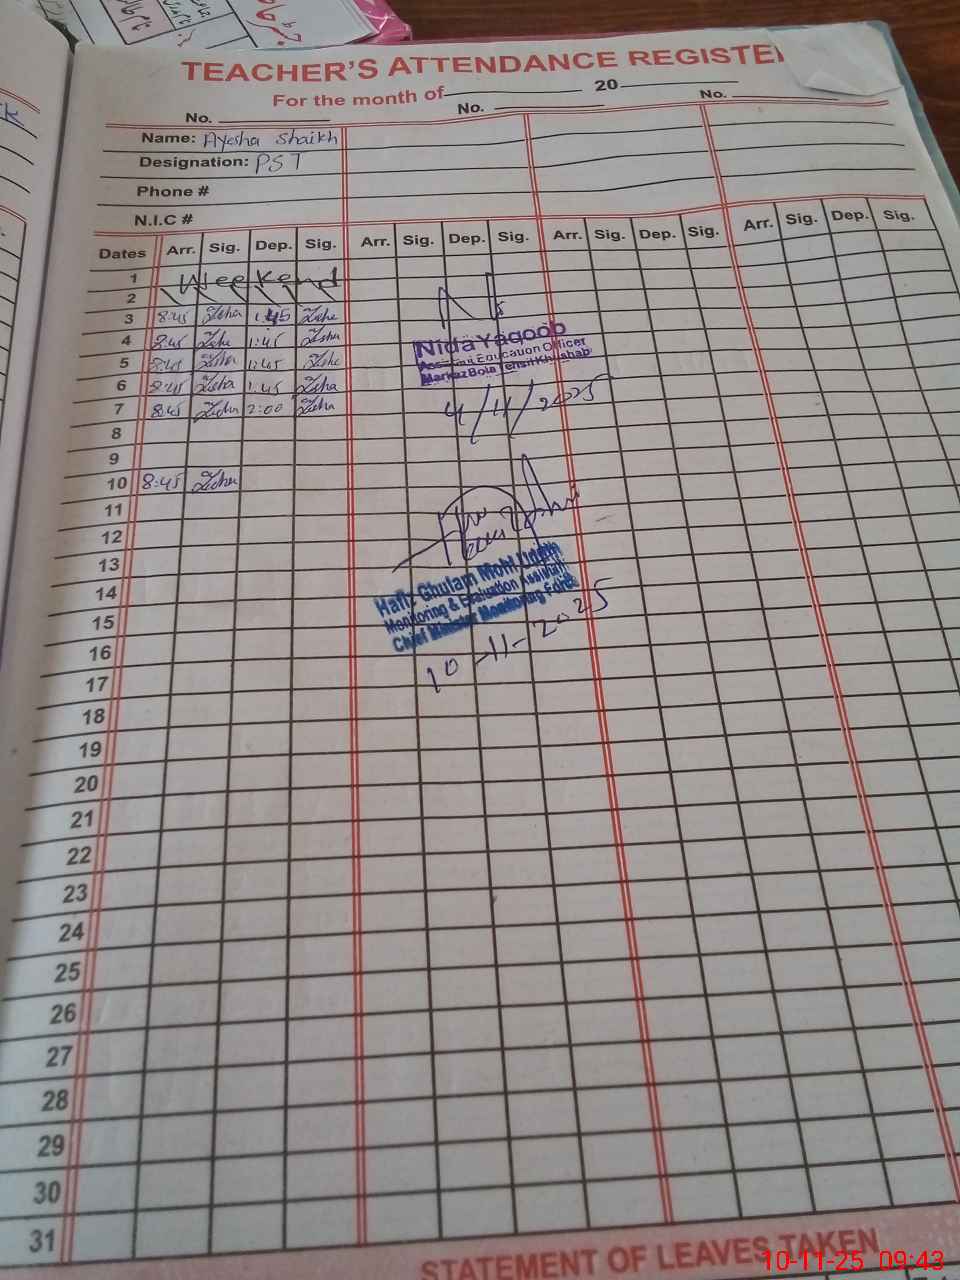 TEACHER'S ATTENDANCE REGISTER
For the month of 20
No. No. No.
Name: Ayesha Shaikh
Designation: PST
Phone #
N.I.C #
Dates Arr. Sig. Dep. Sig. Arr. Sig. Dep. Sig. Arr. Sig. Dep. Sig. Arr. Sig. Dep. Sig.
1 Weekend
2
3 8:45 1:45
4 8:45 1:45
5 8:45 1:45
6 8:45 1:45
7 8:45 2:00
8
9
10 8:45
11
12
13
14
15
16
17
18
19
20
21
22
23
24
25
26
27
28
29
30
31
Nida Yaqoob
Assistant Education Officer
Markaz Bola Tehsil Khushab
4/11/2025
Hafiz Ghulam Mohi Uddin
Monitoring & Evaluation Assistant
Chief Minister Monitoring Force
10-11-2025
STATEMENT OF LEAVES TAKEN
10-11-25 09:43